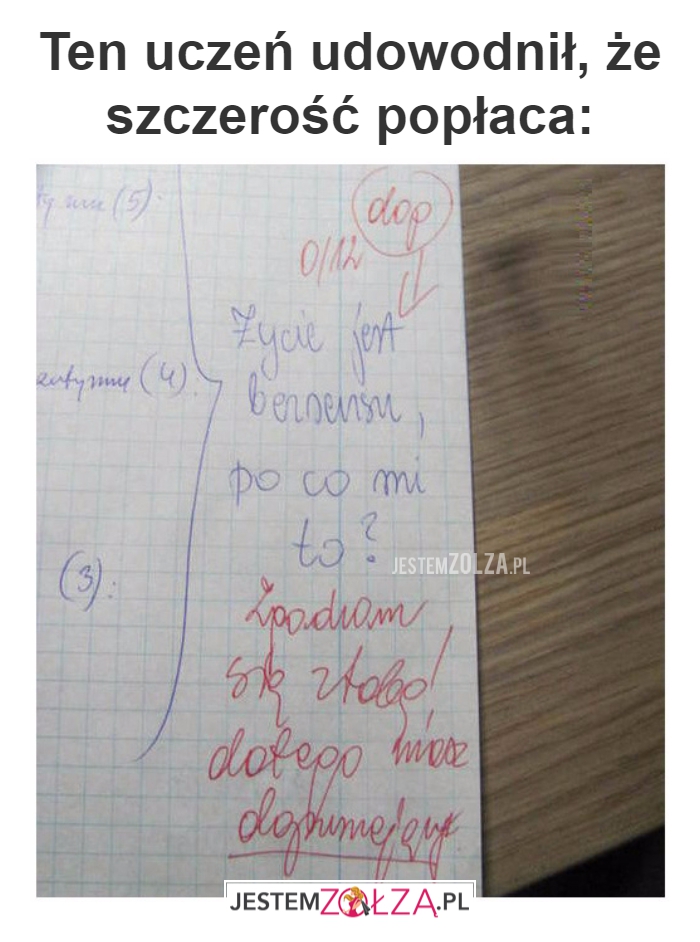 Ten uczeń udowodnił, że
szczerość popłaca:
dop
(5):
0/12
Życie jest
(4)
bezsensu,
po co mi
to?
JESTEMZOLZA.PL
(3):
Zgadzam
się z tobą!
dlatego masz
JESTEMZOŁZA.PL